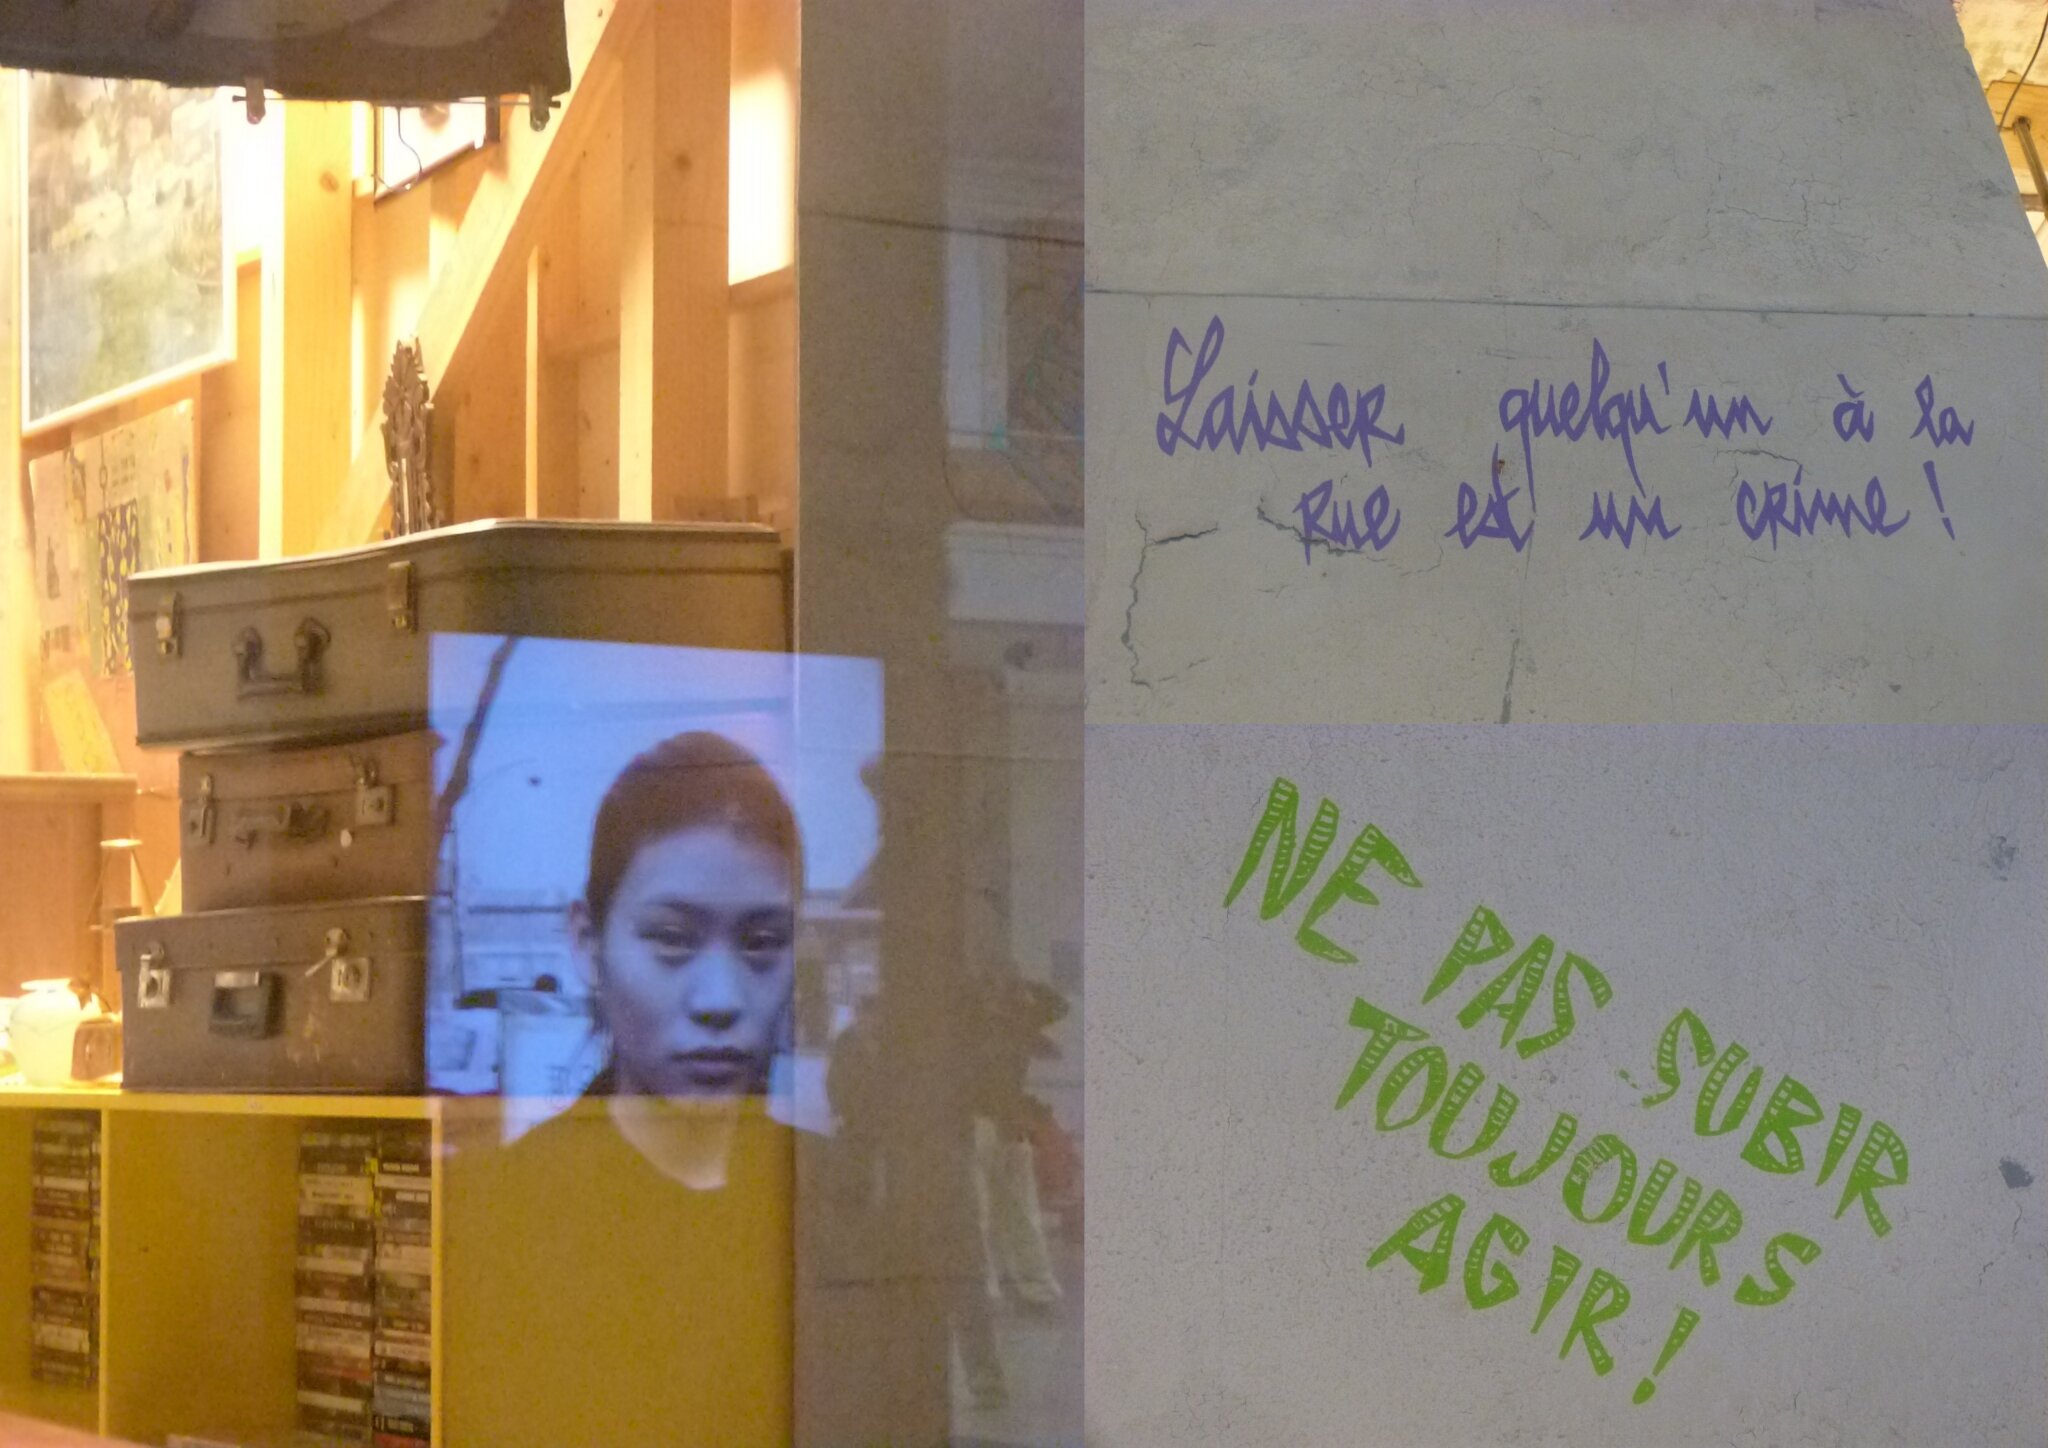 Laisser quelqu'un à la
rue est un crime!
NE PAS SUBIR
TOUJOURS
AGIR!